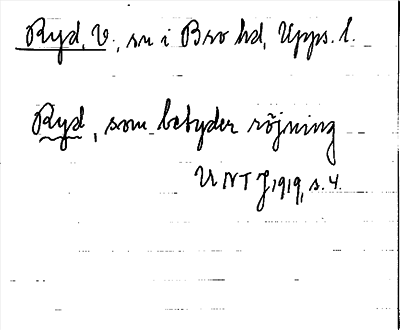 Ryd, V., sn i Bro hd, Upps. l.
Ryd, som betyder röjning
UNT J 1919, s. 4.